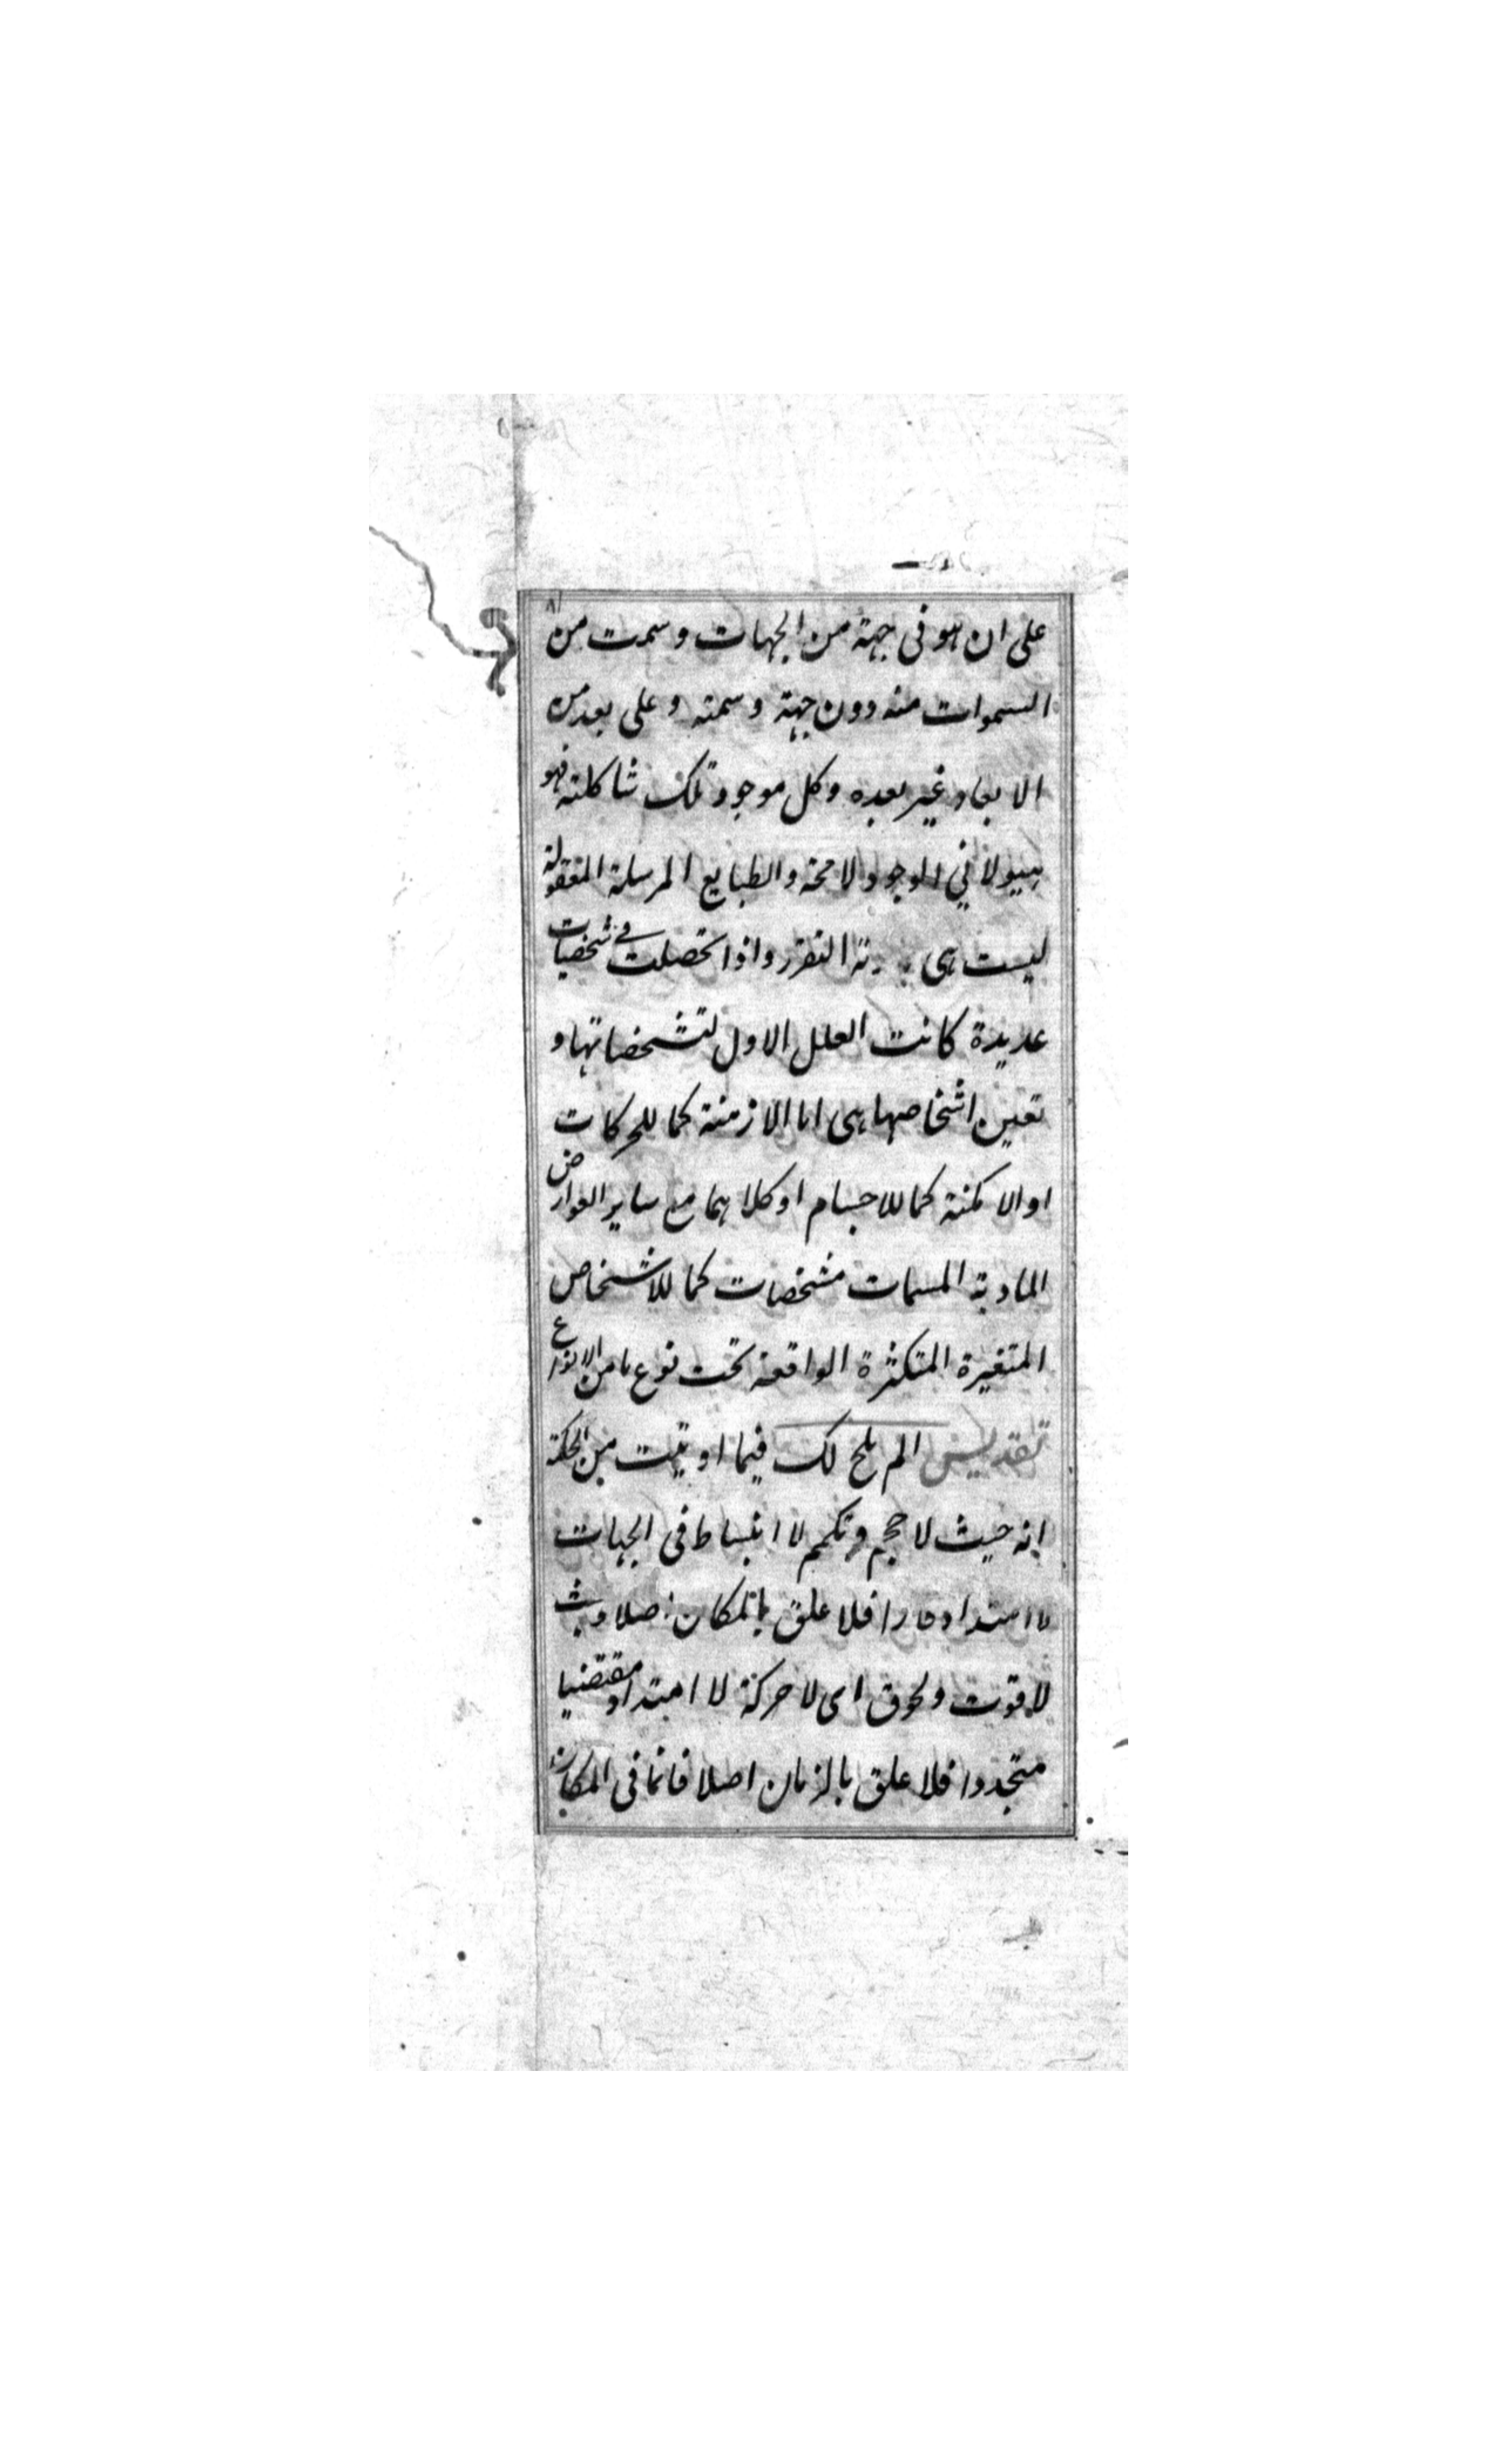 على ان هو فى جهة من الجهات وسمت من
السموات منه دون جهة وسمته وعلى بعد من
الابعاد غير بعده وكل موجود تلك شاكلته فهو
هيولانى الوجود لا محة والطبايع المرسلة المعقولة
ليست هى التقرر واذا تحصلت فى شخصيات
عديدة كانت العلل الاول لتشخصاتها و
تعين اشخاصها هى اما الازمنة كما للحركات
او الامكنة كما للاجسام او كلاهما مع ساير العوارض
المادية المسمات مشخصات كما للاشخاص
المتغيرة المتكثرة الواقعة تحت نوع ما من الانواع
تقديس الم يلح لك فيما اوتيت من الحكمة
انه حيث لا حجم وتكمم لا انبساط فى الجهات
لا امتداد قارا فلا علق بالمكان اصلا وحيث
لا فوت ولحوق اى لا حركة لا امتداد مقتضيا
متجددا فلا علق بالزمان اصلا فانما فى المكان